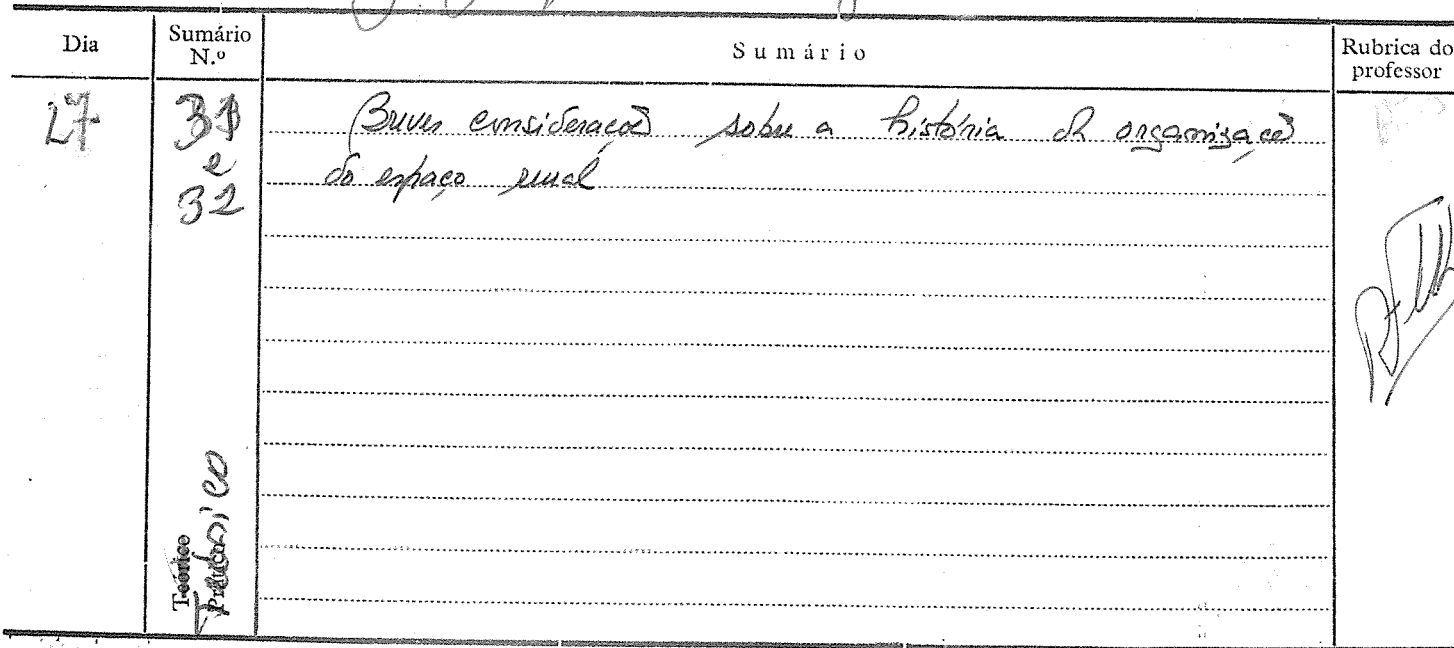 Dia
Sumário N.º
Sumário
Rubrica do professor
27
31 e 32
Breves considerações sobre a história da organização
do espaço rural
Teórico